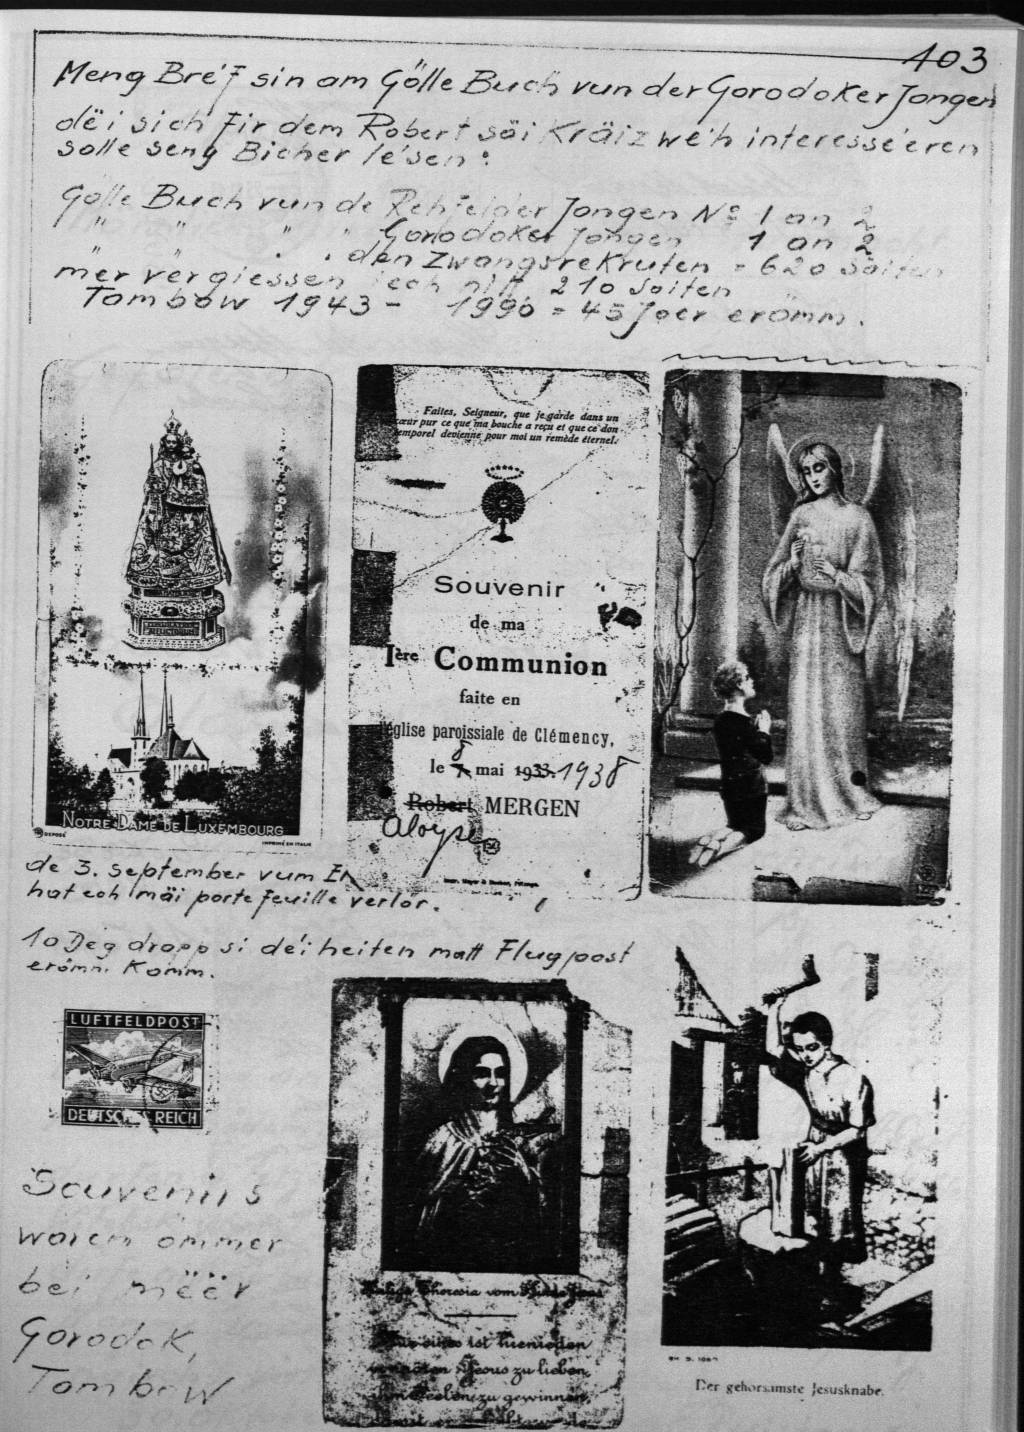 403
Meng Bréf sin am Gölle Buch vun der Gorodoker Jongen
dëi sich fir dem Robert säi Kräiz wéh interesséeren
solle seng Bicher lésen:
Gölle Buch vun de Rehfelder Jongen No 1 an 2
" " " " Gorodoker Jongen 1 an 2
" " " den Zwangsrekruten = 620 Säiten
mer vergiessen iech nitt 210 Säiten
Tombow 1943 - 1990 = 45 Joer erömm.
Faites, Seigneur, que je garde dans un
cœur pur ce que ma bouche a reçu et que ce don
temporel devienne pour moi un remède éternel.
Souvenir
de ma
Ière Communion
faite en
l'église paroissiale de Clémency,
le 8 mai 1933. 1938
Robert MERGEN
Aloyse
Impr. Meyer & Becker, Pétange.
NOTRE DAME DE LUXEMBOURG
DEPOSÉ
IMPRIMÉ EN ITALIE
de 3. September vum
hat ech mäi portefeuille verlor.
10 Deg dropp si dëi heiten matt Flugpost
erömm Komm.
LUFTFELDPOST
DEUTSCHES REICH
Souvenirs
waren ömmer
bei mëër
Gorodok,
Tombow
Heilige Theresia vom Kinde Jesu
Nur eines ist hienieden
vonnöten: Jesus zu lieben,
ihm Seelen zu gewinnen,
Der gehorsamste Jesusknabe.